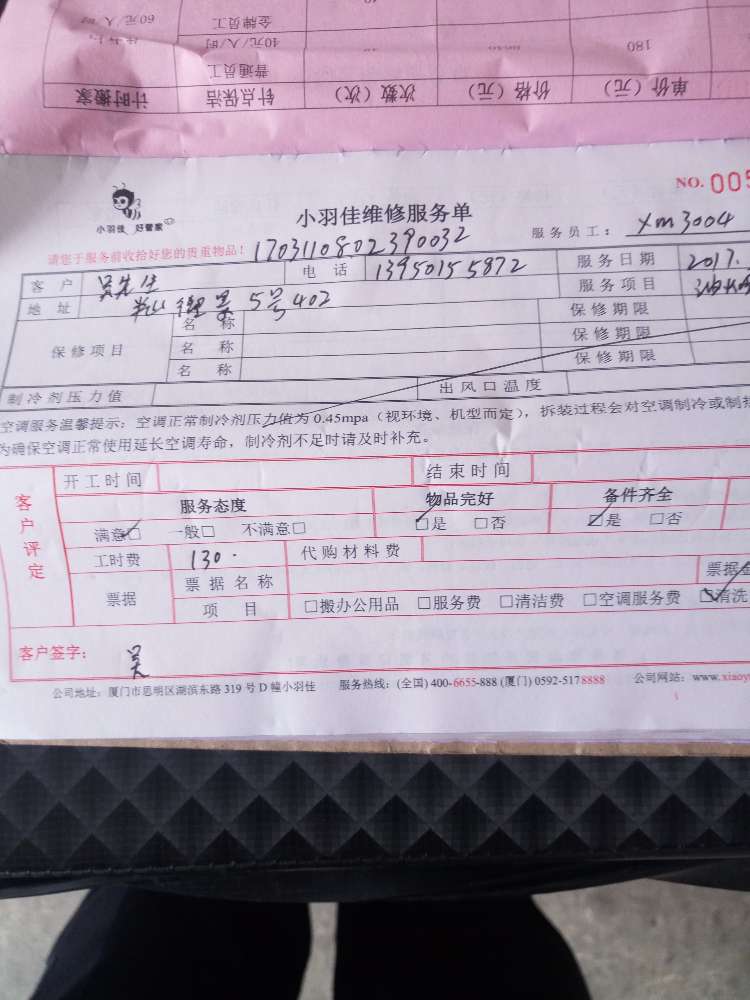 60元/人/时
金牌员工
40元/人/时
180
普通员工
计时搬家 针点保洁 次数（次） 价格（元） 单价（元）
小羽佳 好管家
小羽佳维修服务单
NO. 005
请您于服务前收拾好您的贵重物品！
1703110802390032
服务员工： xm3004
客户 吴先生 电话 13950155872 服务日期 2017.
地址 5号402 服务项目
保修项目 名称 保修期限
名称 保修期限
名称 保修期限
制冷剂压力值 出风口温度
空调服务温馨提示：空调正常制冷剂压力值为0.45mpa（视环境、机型而定），拆装过程会对空调制冷或制热
为确保空调正常使用延长空调寿命，制冷剂不足时请及时补充。
客户评定
开工时间 结束时间
服务态度 物品完好 备件齐全
满意☑ 一般□ 不满意□ ☑是 □否 ☑是 □否
工时费 130. 代购材料费
票据 票据名称 票据金
项目 □搬办公用品 □服务费 □清洁费 □空调服务费 ☑清洗
客户签字： 吴
公司地址：厦门市思明区湖滨东路319号D幢小羽佳 服务热线：(全国) 400-6655-888 (厦门) 0592-5178888 公司网站：www.xiaoy